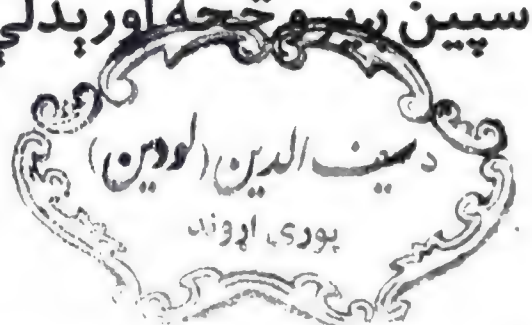 سپين ږيرو څخه اوريدلي
د سيف الدين (لودين)
پوري اړوند